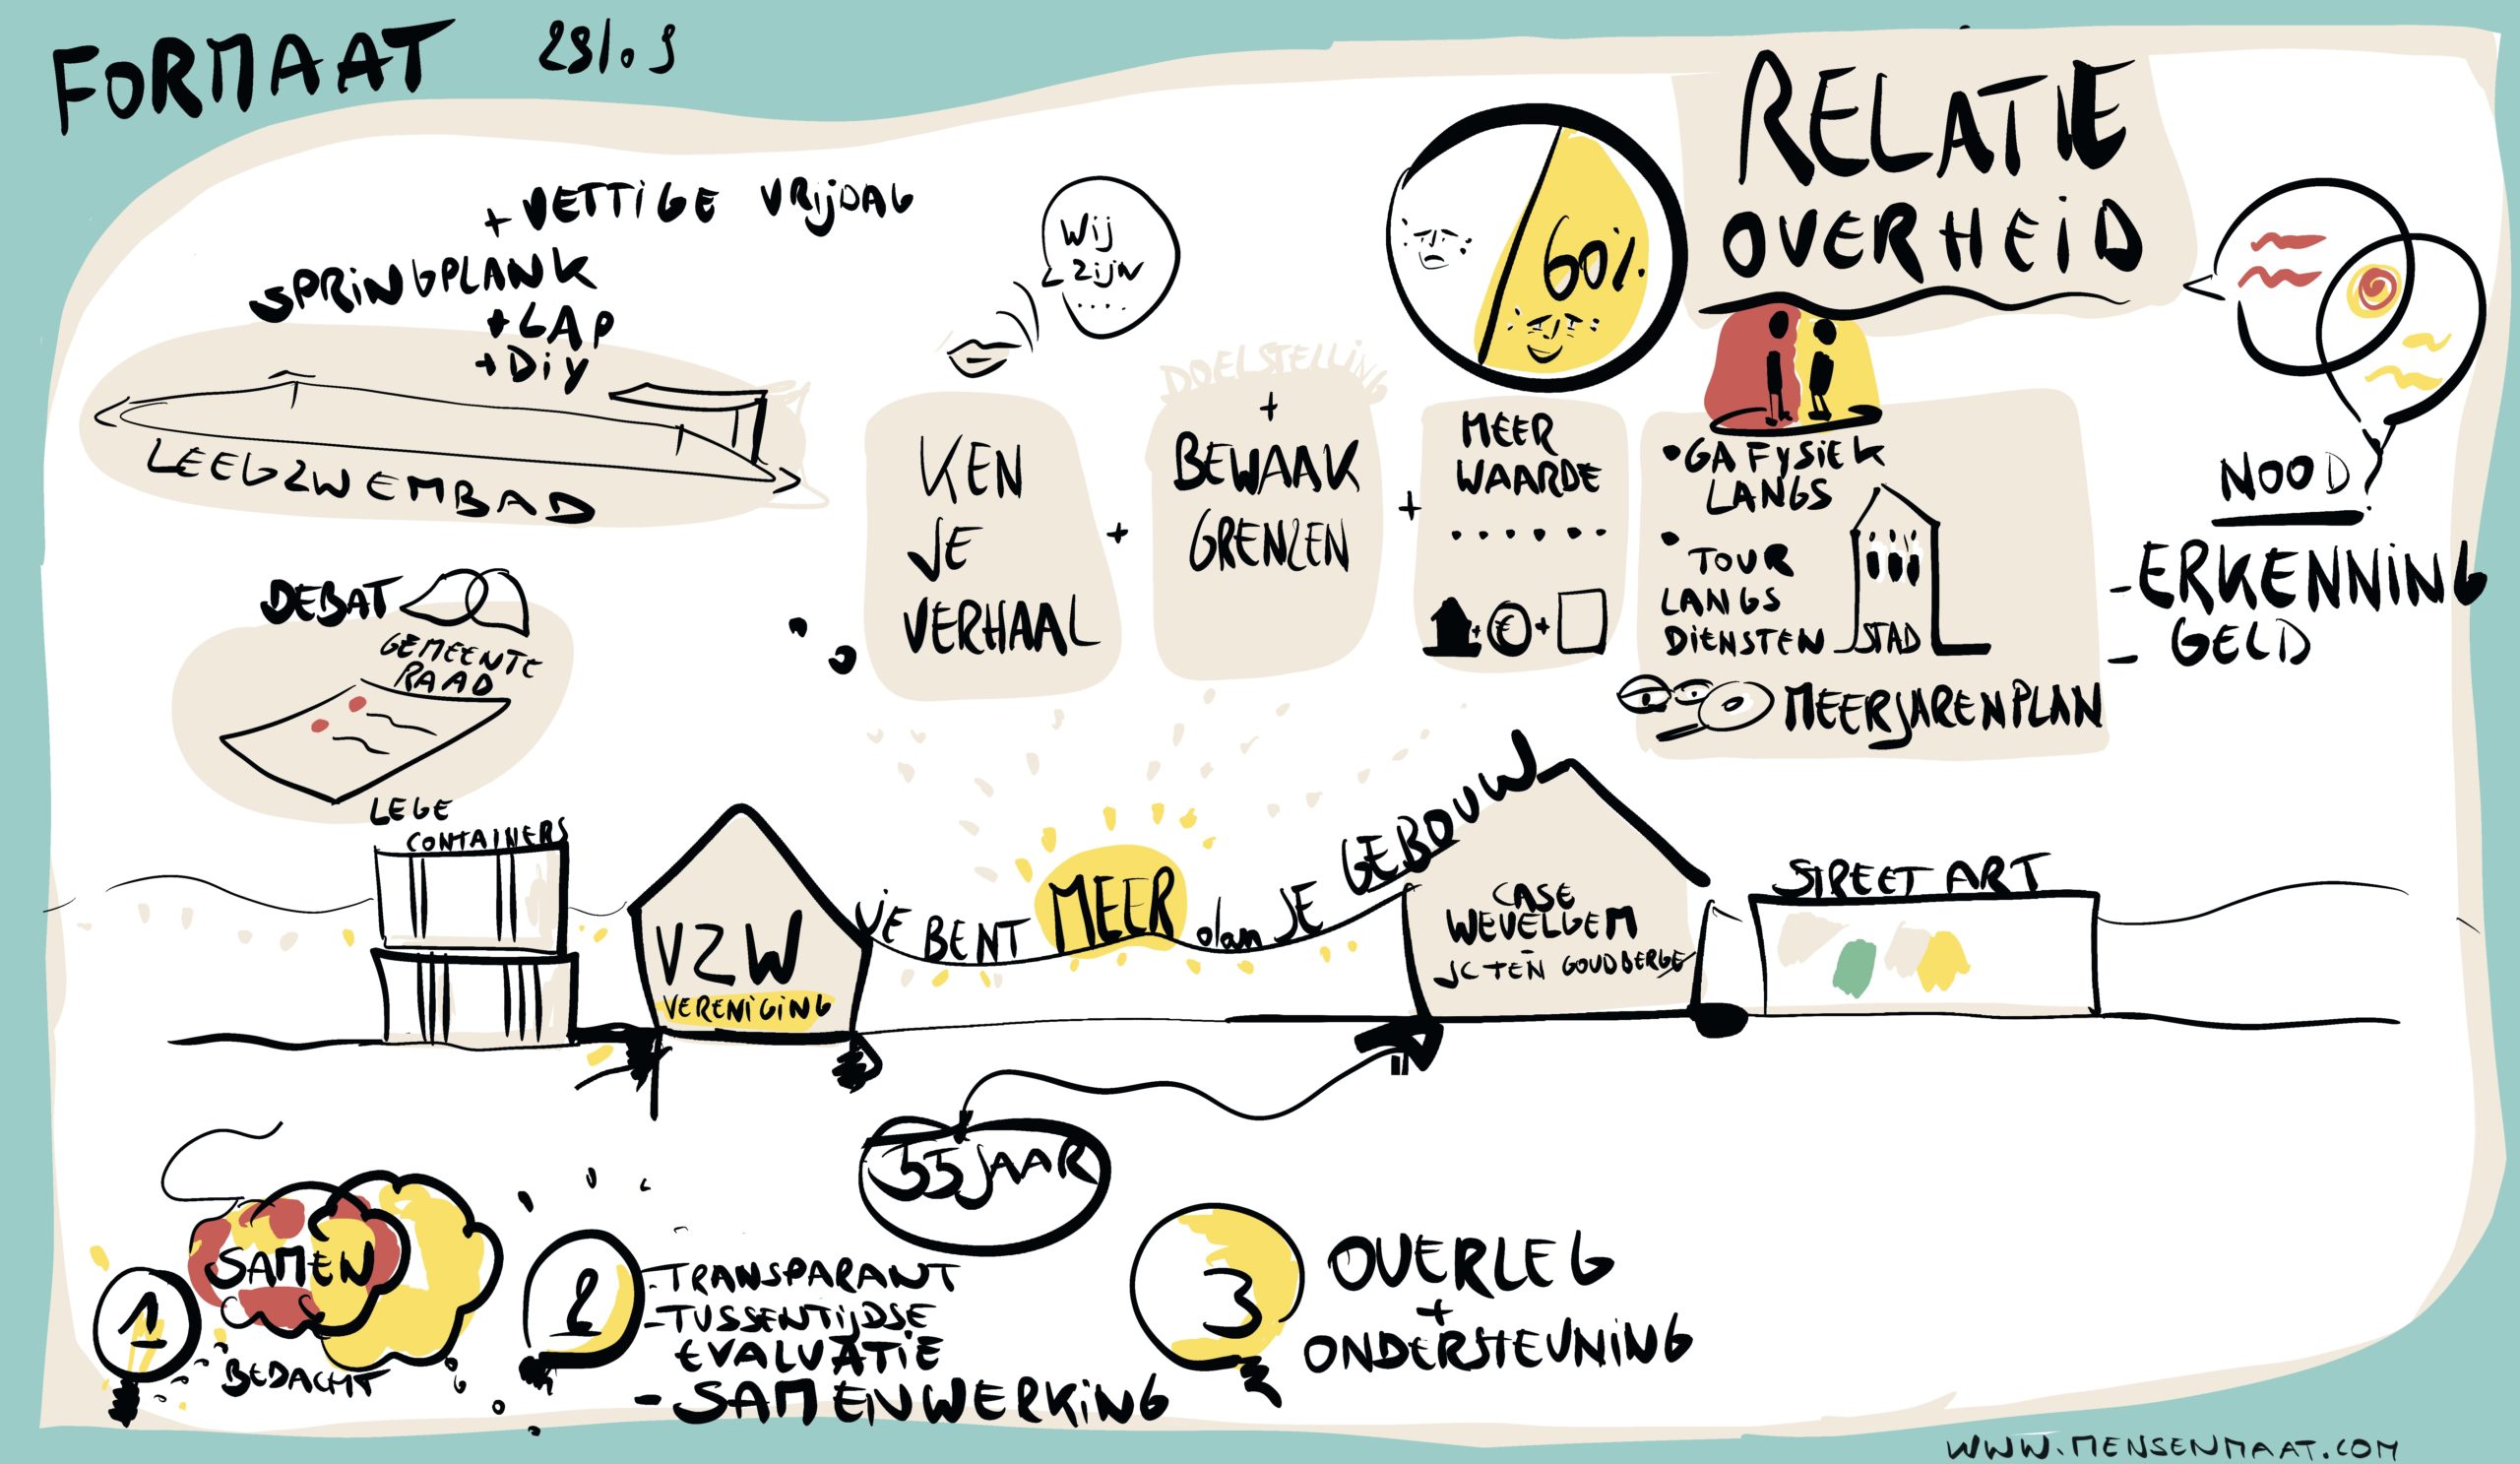 FORMAAT
RELATIE
OVERHEID
+ VETTIGE VRIJDAG
SPRINGPLANK
+ LAP
+ DIY
LEEG ZWEMBAD
Wij
zijn
....
60%
DOELSTELLING
+
KEN
JE
VERHAAL
+
BEWAAK
GRENZEN
+
MEER
WAARDE
......
+ € +
• GA FYSIEK
LANGS
• TOUR
LANGS
DIENSTEN
STAD
MEERJARENPLAN
NOOD
- ERKENNING
- GELD
DEBAT
GEMEENTE
RAAD
LEGE
CONTAINERS
VZW
VERENIGING
JE BENT MEER dan JE GEBOUW
CASE
WEVELGEM
-
JC TEN GOUDBERGE
STREET ART
55 JAAR
1
SAMEN
BEDACHT
2
- TRANSPARANT
- TUSSENTIJDSE
EVALUATIE
- SAMENWERKING
3
OVERLEG
+
ONDERSTEUNING
WWW.MENSENMAAT.COM